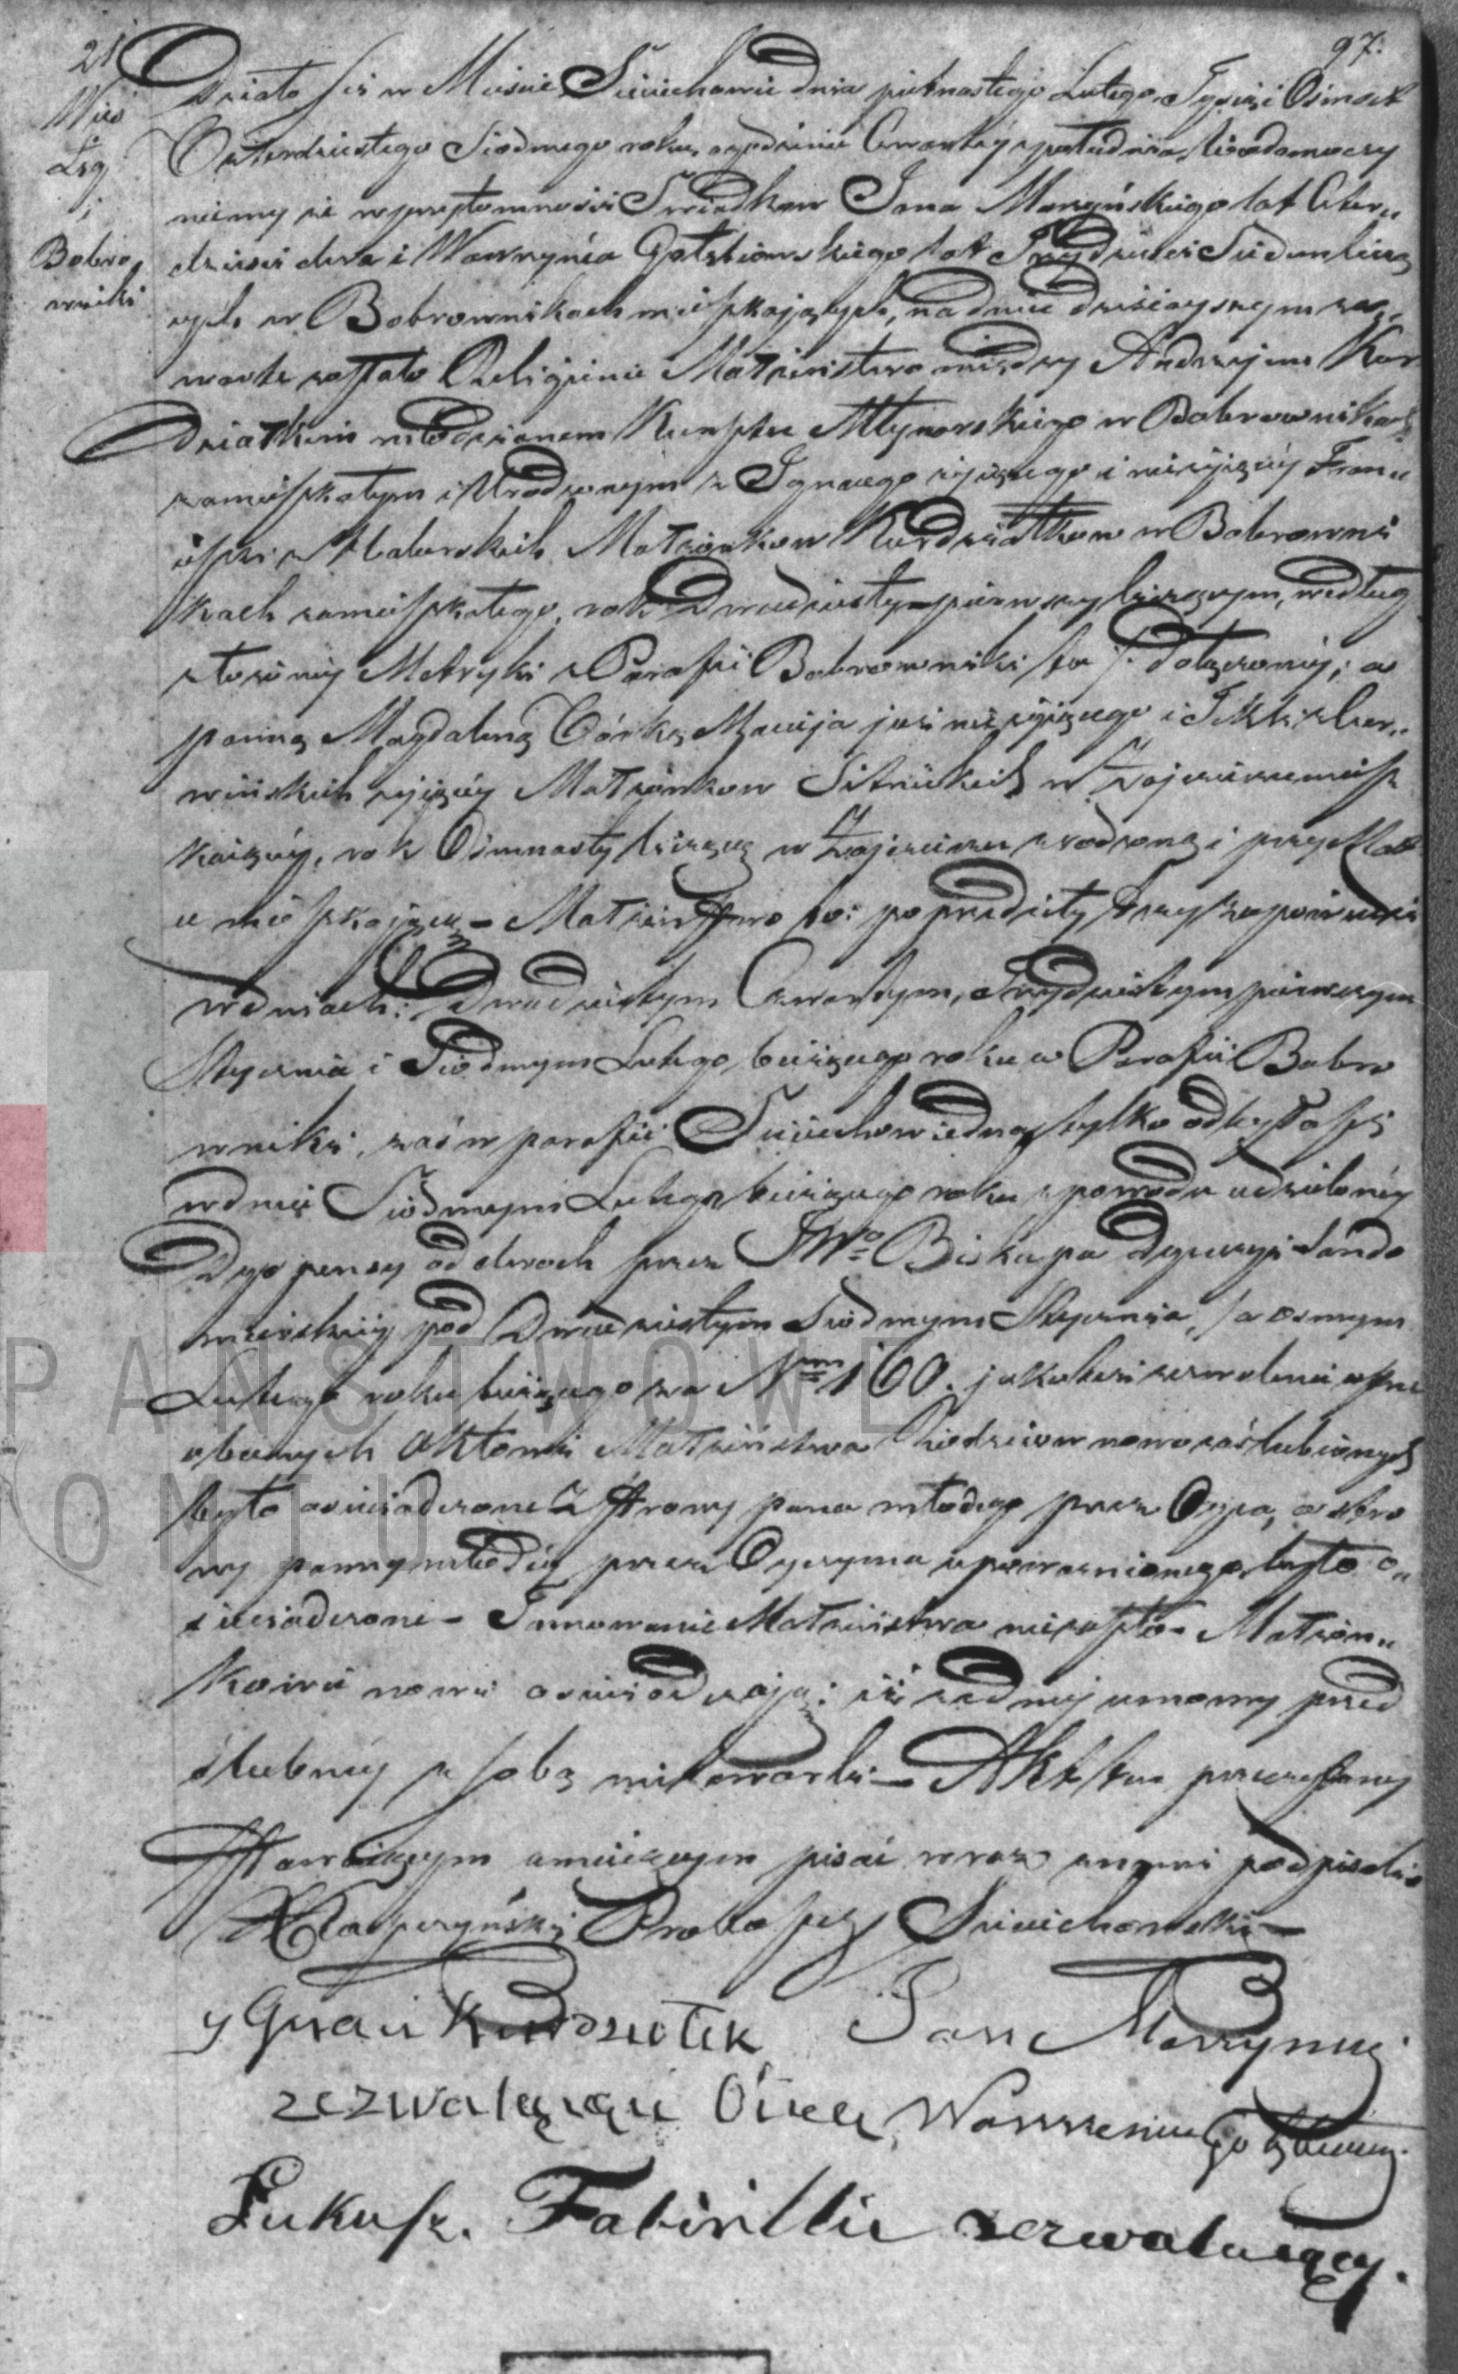 21
97.
Wieś
Ług
i
Bobro
wniki
Działo się w Mieście Sieciechowie dnia piętnastego Lutego Tysiąc Osmset
Czterdziestego Siodmego roku, o godzinie Czwartey z południa. Wiadomo czy
niemy iż w przytomności Swiadkow Jana Marzyńskiego lat Czter„
dzieści dwa i Wawrzyńca Gołębiowskiego lat Trzydzieści Siedem licząc
ych w Bobrownikach mieszkających, na dniu dzisieyszym za„
warte zostało Religijne Małżeństwo między Andrzejem Kur
działkiem młodzianem Kunsztu Młynarskiego w Bobrownikach
zamieszkałym i Urodzonym z Ignacego żyiącego i nieżyjącéy Fran„
ciszki z Malarskich Małżonkow Kurdziałkow w Bobrowni
kach zamieszkałego, rok Dwudziesty pierwszy liczącym, według
złożoney Metryki z Parafii Bobrowniki tu dołączoney; a
panną Magdaleną Córką Macieja już nieżyiącego i Tekli z Czer„
wińskich żyiącéy Małżonkow Sitnickich w Zajezierzu miesz
kaiącéy, rok Osimnasty liczącą w Zajezierzu zrodzoną i przy Mat
ce mieszkającą – Małżeństwo to: poprzedziły trzy zapowiedzi
w dniach: Dwudziestym Czwartym, Trzydziestym pierwszym
Stycznia i Siodmym Lutego bieżącego roku w Parafii Bobro
wniki, zaś w parafii Sieciechow iedna tylko odbyła się
w dniu Siodmym Lutego bieżącego roku z powodu udzielonéy
Dyspensy od dwoch przez JWo Biskupa dyecezyi Sando
mierskiéy pod Dwudziestym Siodmym Stycznia, / a osmym
Lutego roku bieżącego za Nrem 160. jakoteż zezwolenie
obecnych Aktowi Małżeństwa Rodziców nowozaślubionych
było oświadczone z strony pana młodego przez Oyca, a stro
ny panny młodéy przez Oyczyma upoważnionego było o„
świadczone – Tamowanie Małżeństwa nie zaszło – Małżon„
kowie nowi oświadczają: iż żadnej umowy przed
ślubnéy z sobą nie zawarli – Akt ten przeczytany
Stawaiącym umieiącym pisać wraz z nami podpisali
X Proboszcz Sieciechowski –
ygnaci Kurdziełek Jan Marzynski
zezwalaiąci Ociec, Wawrzeniec Gołębiewski
Łukasz. zezwalaiący.
PAŃSTWOWE
OMIU